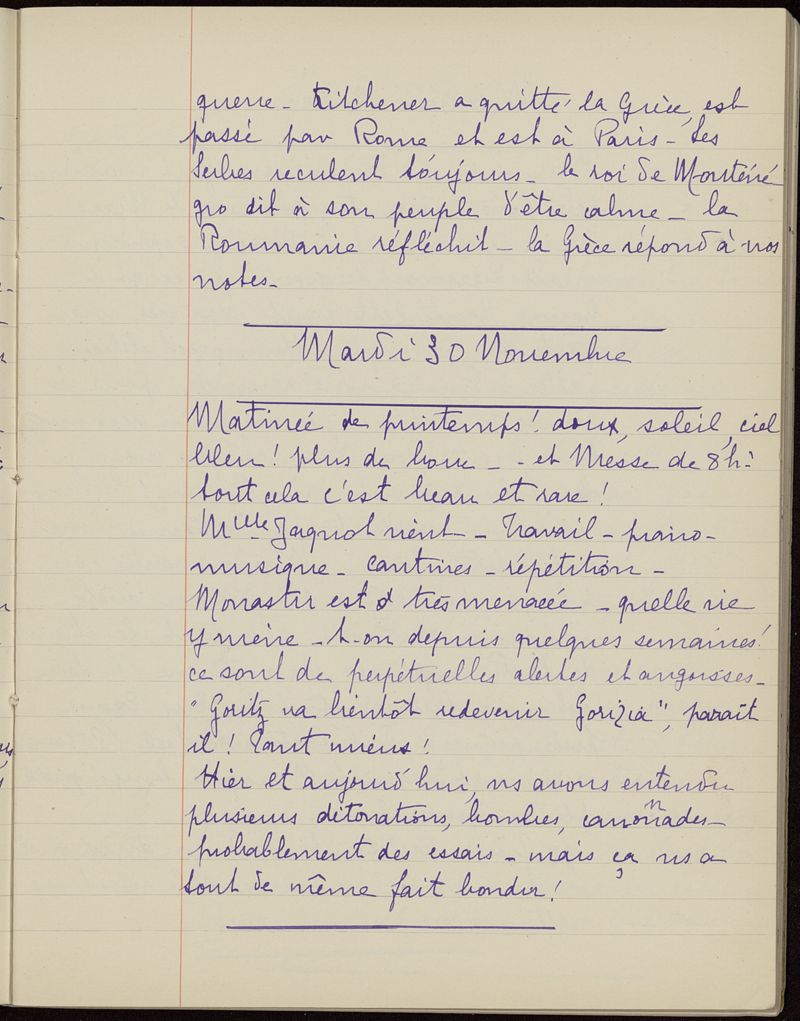 guerre - Kitchener a quitté la Grèce, est
passé par Rome et est à Paris - Les
Serbes reculent toujours - le roi de Monténé
gro dit à son peuple d'être calme - la
Roumanie réfléchit - la Grèce répond à nos
notes -
Mardi 30 Novembre
Matinée de printemps ! doux, soleil, ciel
bleu ! plus de boue - - et Messe de 8h !
tout cela c'est beau et rare !
Mlle Jagnot vient - Travail - piano -
musique - cantines - répétition -
Monastir est très menacée - quelle vie
y mène-t-on depuis quelques semaines !
ce sont de perpétuelles alertes et angoisses -
"Goritz va bientôt redevenir Gorizia", parait
il ! Tant mieux !
Hier et aujourd'hui, ns avons entendu
plusieurs détonations, bombes, canonnades -
probablement des essais - mais ça ns a
tout de même fait bondir !